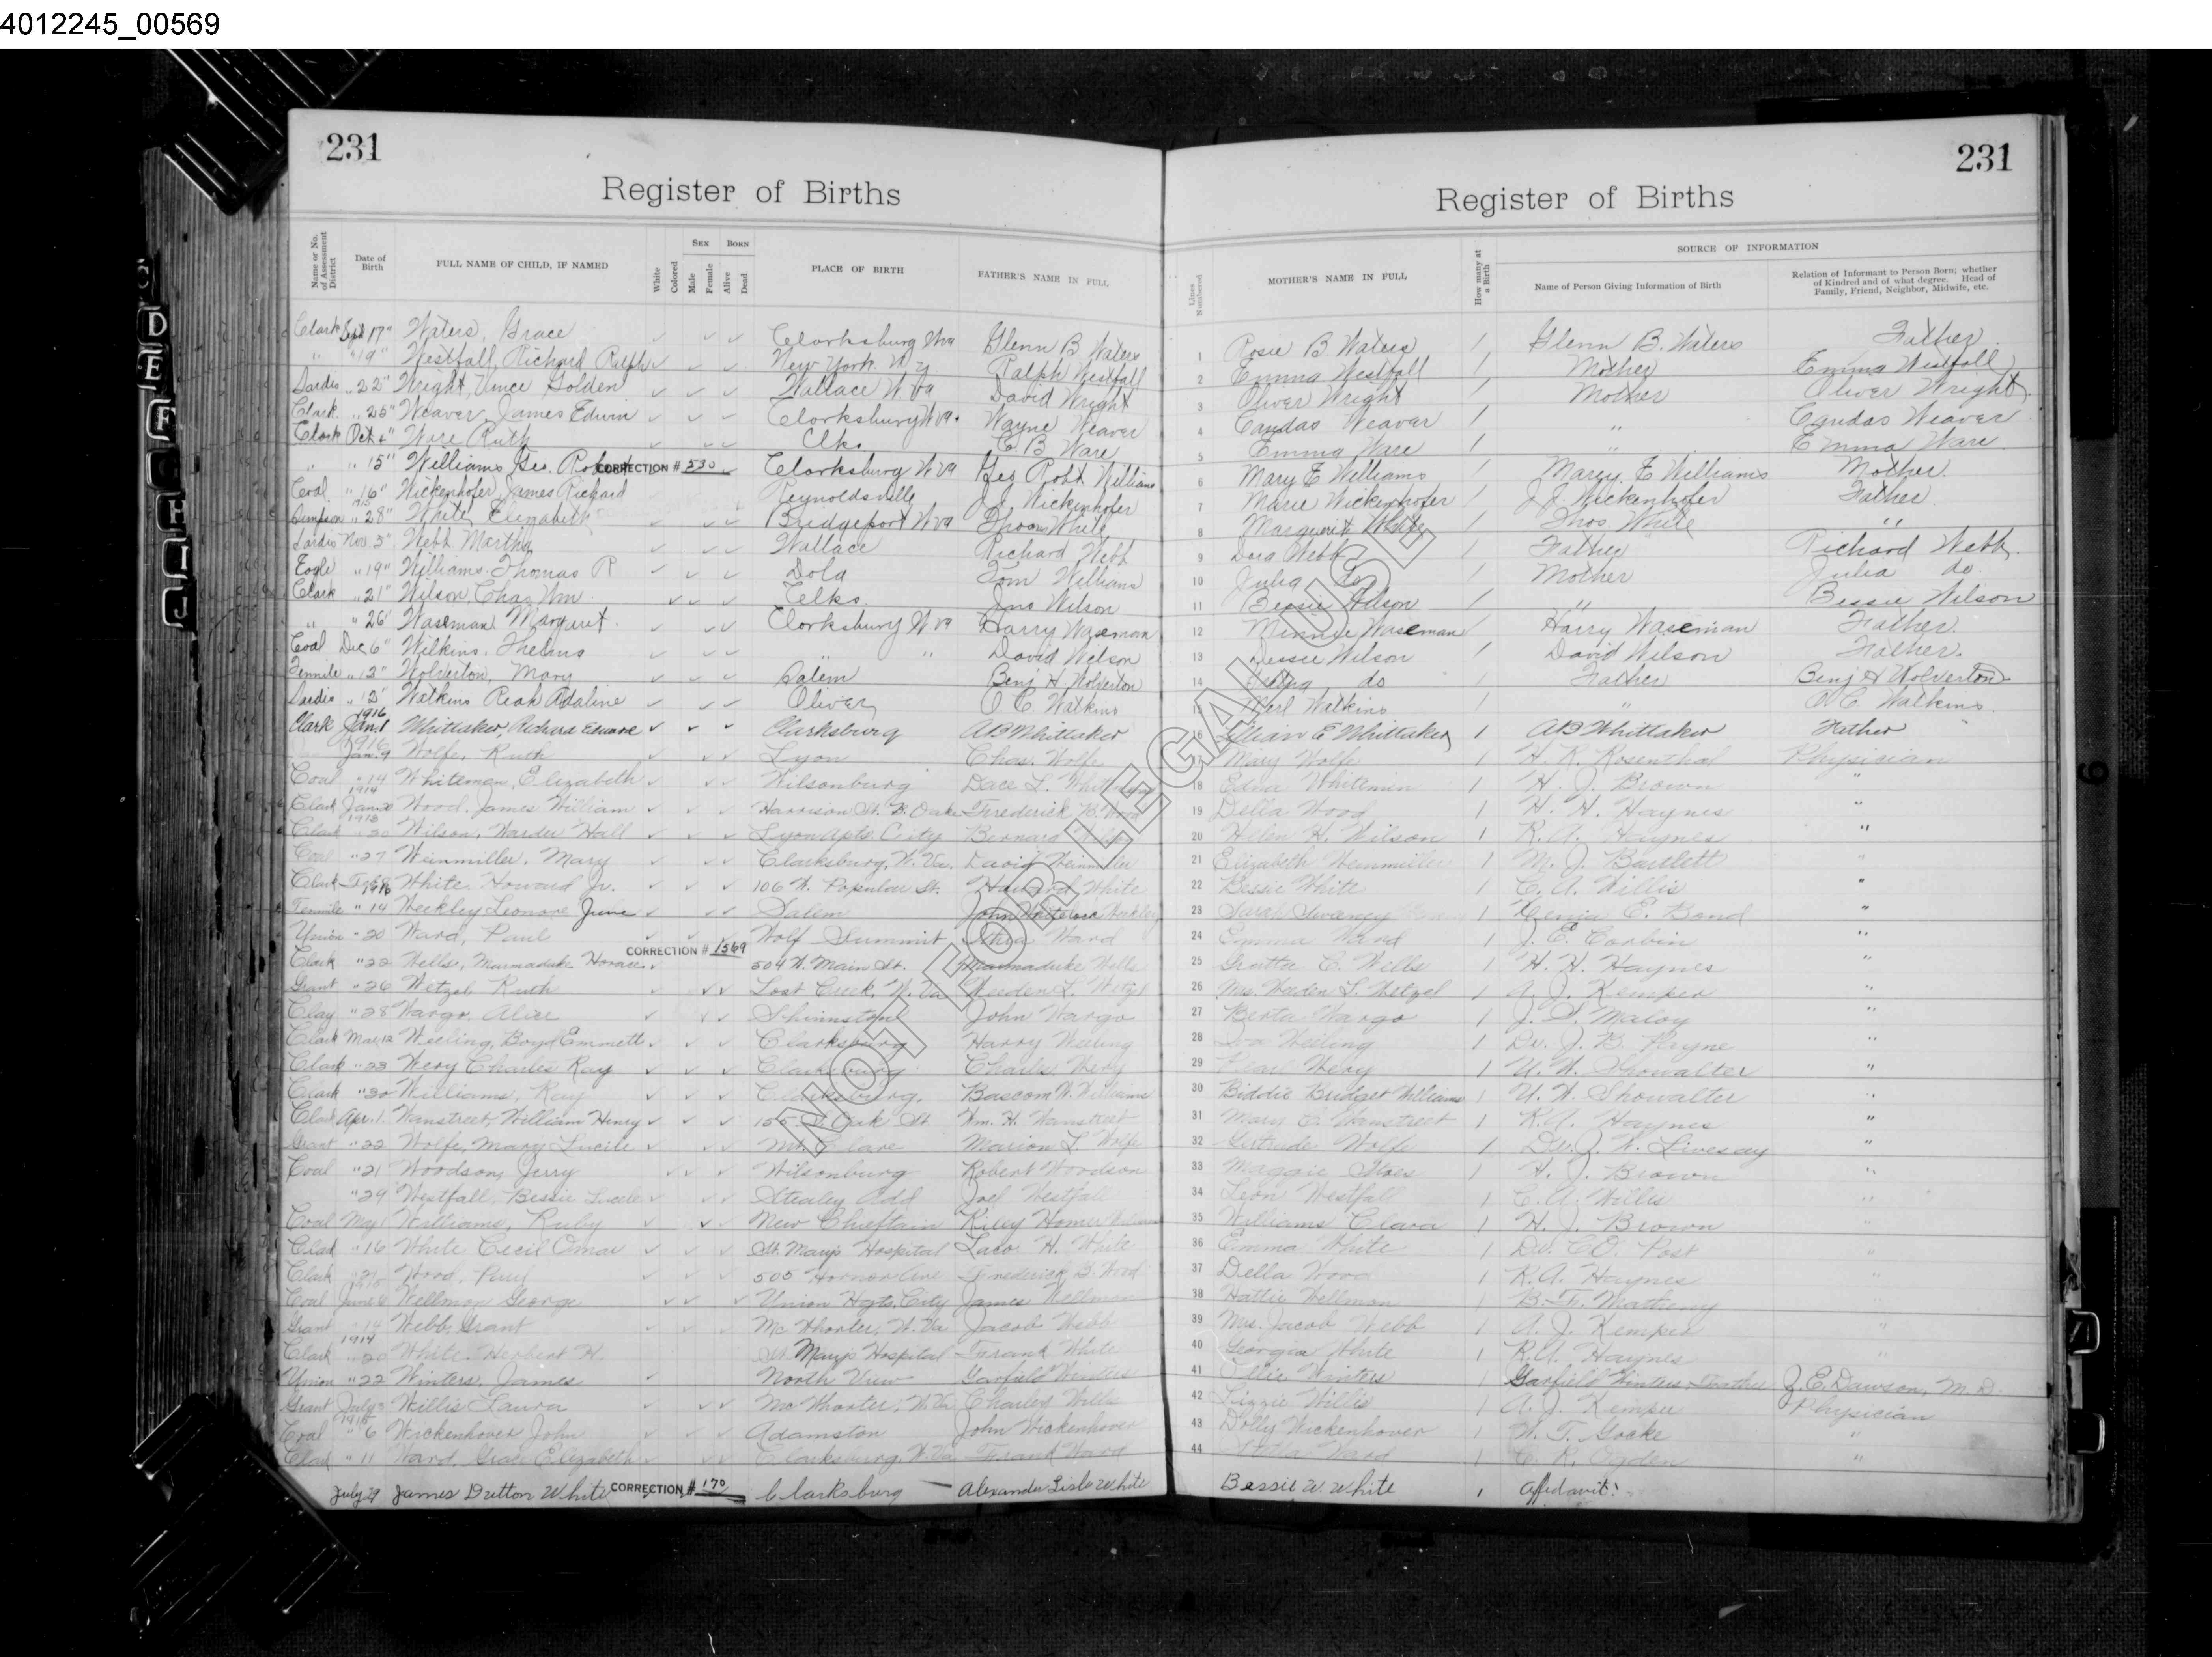 4012245_00569
231
231
Register of Births
Register of Births
Name or No. of Assessment District
Date of Birth
FULL NAME OF CHILD, IF NAMED
White
Colored
SEX
Male
Female
BORN
Alive
Dead
PLACE OF BIRTH
FATHER'S NAME IN FULL
Lines Numbered
MOTHER'S NAME IN FULL
How many at a Birth
SOURCE OF INFORMATION
Name of Person Giving Information of Birth
Relation of Informant to Person Born; whether of Kindred and of what degree, Head of Family, Friend, Neighbor, Midwife, etc.
Clark Sept 17" Waters, Grace Clarksburg WVa Glenn B Waters 1 Rosie B Waters 1 Glenn B. Waters Father
" " 19" Westfall, Richard Ralph New York N.Y. Ralph Westfall 2 Emma Westfall 1 Mother Emma Westfall
Sardis " 22" Wright, Vince Golden Wallace W.Va David Wright 3 Oliver Wright 1 Mother Oliver Wright
Clark " 25" Weaver, James Edwin Clarksburg W.Va. Wayne Weaver 4 Candas Weaver 1 " Candas Weaver
Clark Oct 4" Ware Ruth Clks. C B Ware 5 Emma Ware 1 " Emma Ware
" " 15" Williams, Geo. Robert CORRECTION # 530 Clarksburg W.Va Geo Robt Williams 6 Mary E Williams 1 Mary E Williams Mother.
Coal " 16" Wickenhofer, James Richard Reynoldsville J. J. Wickenhofer 7 Marie Wickenhofer 1 J. J. Wickenhofer Father
Simpson " 28" White, Elizabeth Bridgeport W.Va Thomas White 8 Margaret White 1 Thos. White "
Sardis Nov. 3" Webb Martha Wallace Richard Webb 9 Webb 1 Father Richard Webb.
Eagle " 19" Williams, Thomas P Dola Tom Williams 10 Julia do 1 Mother Julia do.
Clark " 21" Wilson, Chas Wm Jno Wilson 11 Bessie Wilson 1 " Bessie Wilson
" " 26' Waseman Margaret. Clarksburg W.Va Harry Waseman 12 Minnie Waseman 1 Harry Waseman Father.
Coal Dec 6" Wilkins, Thelma " " David Wilson 13 Jessie Wilson 1 David Wilson Father.
Tenmile " 13" Wolverton, Mary Salem Benj H. Wolverton 14 do 1 Father Benj H Wolverton
Sardis " 12' Watkins Adaline Oliver O C. Watkins 15 Merl Watkins 1 " O C. Watkins.
1916
Clark Jan 1 Whittaker, Richard Edward Clarksburg AB Whittaker 16 Lilian E Whittaker 1 AB Whittaker Father
1916
Jan. 9 Wolfe, Ruth Lyon Chas. Wolfe 17 Mary Wolfe 1 H. R. Rosenthal Physician
Coal " 14 Whiteman, Elizabeth Wilsonburg Dace L. 18 Edna Whiteman 1 H. J. Brown "
1914
Clark Jan Wood, James William Harrison St. B. Oaks Frederick B. Wood 19 Della Wood 1 H. H. Haynes "
Clark " 20 Wilson, Warder Hall Lyon Apts. City Bernard 20 Helen H. Wilson 1 R. A. Haynes "
Coal " 27 Weinmiller, Mary Clarksburg, W. Va. David Weinmiller 21 Elizabeth Weinmiller 1 M. J. Bartlett "
Clark Feb 8 White, Howard Jr. 106 W. Popular St. Howard White 22 Bessie White 1 C. A. Willis "
Tenmile " 14 Weekley Leonore June Salem John Weekley 23 Sarah Swaney 1 Xenia E. Bond "
Union " 20 Ward, Paul Wolf Summit Ward 24 Emma Ward 1 J. E. Corbin "
Clark " 22 Wells, Marmaduke Horace CORRECTION # 1569 504 W. Main St. Marmaduke Wells 25 Gratta C. Wells 1 H. H. Haynes "
Grant " 26 Wetzel, Ruth Lost Creek, W. Va Worden L. Wetzel 26 Mrs. Worden L. Wetzel 1 A. J. Kemper "
Clay " 28 Wargo, Alice Shinnston John Wargo 27 Berta Wargo 1 J. S. Maloy "
Clark Mar. 12 Weeling, Boyd Emmett Clarksburg Harry Weeling 28 Iva Weeling 1 Dr. J. B. Payne "
Clark " 23 Wery Charles Ray Clarksburg Charles Wery 29 Pearl Wery 1 U. W. Showalter "
Clark " 30 Williams, Ray Clarksburg. Bascom W. Williams 30 Biddie Bridget Williams 1 U. W. Showalter "
Clark Apr. 1. Wanstreet, William Henry 155 S. Oak St. Wm. H. Wanstreet 31 Mary C. Wanstreet 1 R. A. Haynes "
Grant " 22 Wolfe, Mary Lucile Mt. Clare Marion L. Wolfe 32 Gertrude Wolfe 1 Dr. J. W. Livesay "
Coal " 21 Woodson, Jerry Wilsonburg Robert Woodson 33 Maggie 1 H. J. Brown "
" 29 Westfall, Bessie Lucile Stealey Add Joel Westfall 34 Leon Westfall 1 C. A. Willis "
Coal May Williams, Ruby New Chieftain Riley Homer Williams 35 Williams Clara 1 H. J. Brown "
Clark " 16 White Cecil Omar St. Marys Hospital H. White 36 Emma White 1 Dr. C. O. Post "
Clark Wood, Paul 505 Hornor Ave Frederick B. Wood 37 Della Wood 1 R. A. Haynes "
Coal June 6 Wellman George Union Hgts. City James Wellman 38 Hattie Wellman 1 B. F. Matheny
Grant Webb Grant McWhorter, W. Va Jacob Webb 39 Mrs. Jacob Webb 1 A. J. Kemper "
1914
Clark " 20 White, Herbert H. St. Marys Hospital Frank White 40 Georgia White 1 R. A. Haynes "
Union " 22 Winters, James North View Garfield Winters 41 Winters 1 Garfield Winters, Father Z. E. Dawson, M. D.
Grant July 3 Willis Laura McWhorter, W. Va Charles Willis 42 Lizzie Willis 1 A. J. Kemper Physician
Coal " 6 Wickenhover John Adamston John Wickenhover 43 Dolly Wickenhover 1 W. T. Gocke "
Clark " 11 Ward, Grace Elizabeth Clarksburg, W. Va Frank Ward 44 Ward 1 C. R. Ogden "
July 29 James Dutton White CORRECTION # 170 Clarksburg Alexander Lisle White Bessie W. White 1 Affidavit
NOT FOR LEGAL USE